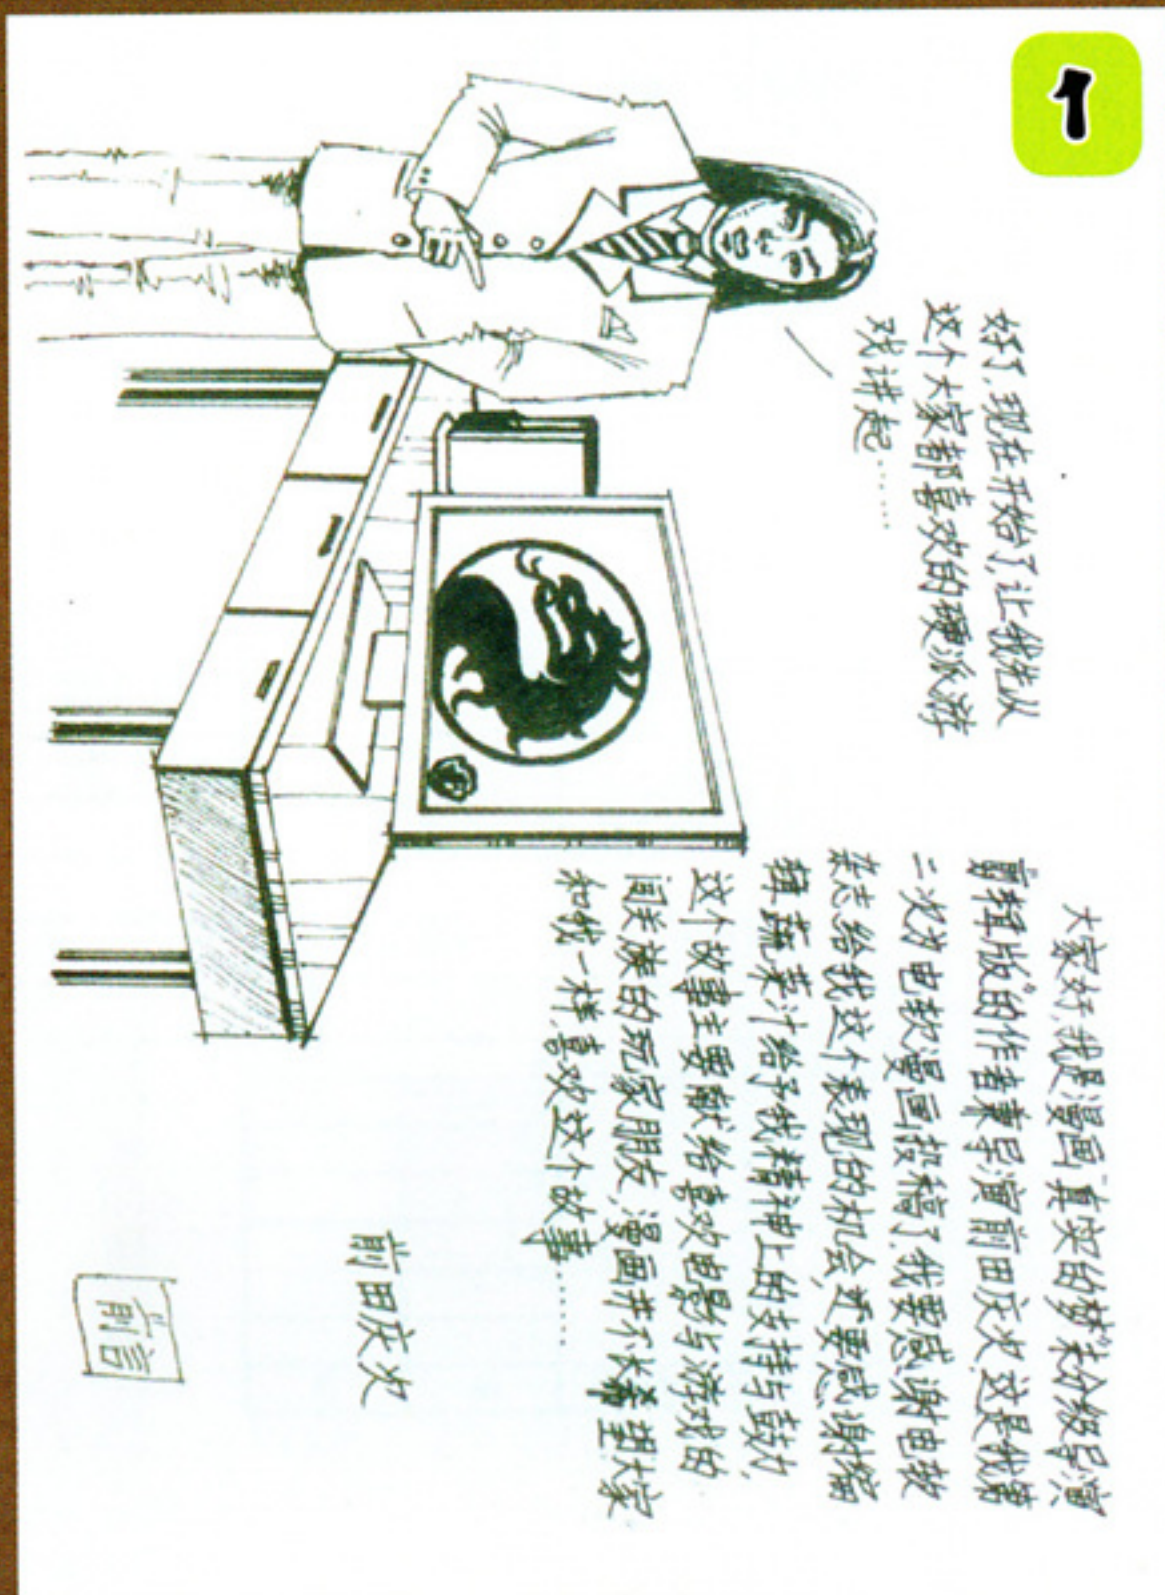 1
好了,现在开始了,让我先从
这个大家都喜欢的硬派游
戏讲起……
大家好,我是漫画"真实的梦"未分级导演
剪辑版"的作者兼导演前田庆次,这是我第
二次为电软漫画投稿了,我要感谢电软
杂志给我这个表现的机会,更要感谢编
辑蔬菜汁给予我精神上的支持与鼓力,
这个故事主要献给喜欢电影与游戏的
闯关族的玩家朋友,漫画并不长希望大家
和我一样,喜欢这个故事……
前田庆次
前言